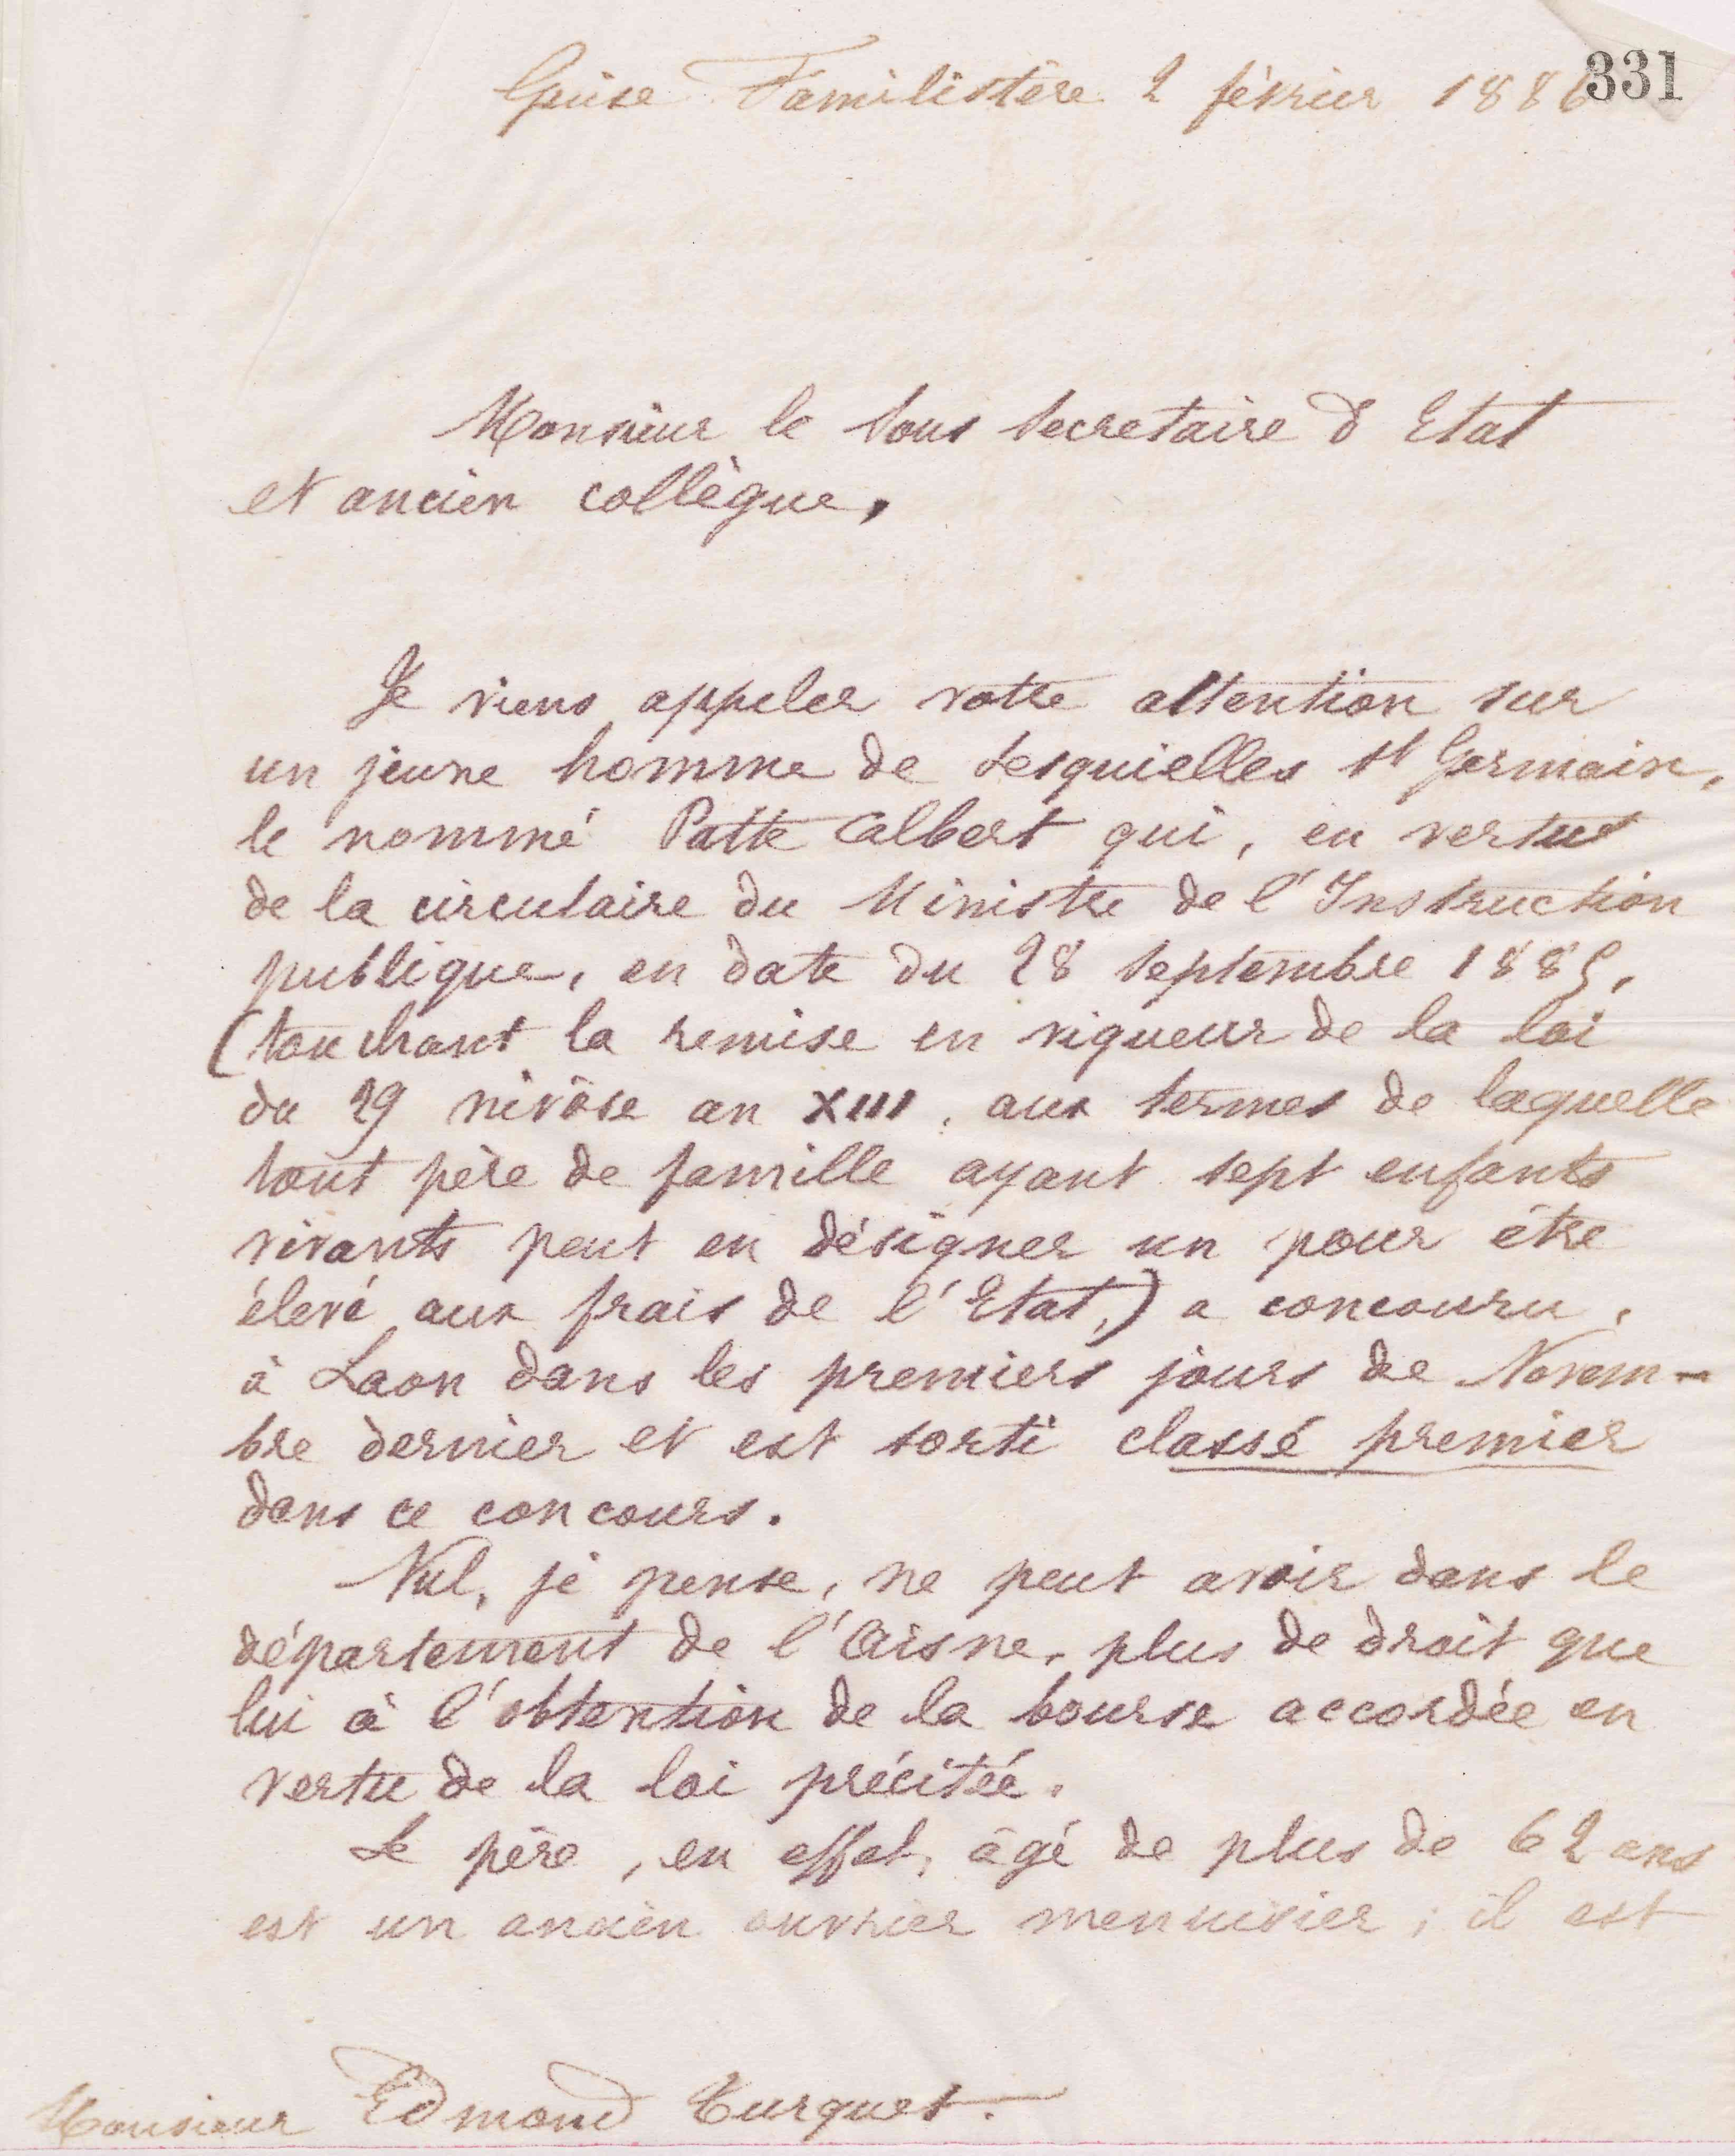 331
Guise Familistère 2 février 1886
Monsieur le Sous Secretaire d'Etat
et ancien collègue,
Je viens appeler votre attention sur
un jeune homme de Lesquielles St Germain,
le nommé Patte Albert qui, en vertu
de la circulaire du Ministre de l'Instruction
publique, en date du 28 Septembre 1885,
(touchant la remise en vigueur de la loi
du 29 nivôse an XIII, aux termes de laquelle
tout père de famille ayant sept enfants
vivants peut en désigner un pour être
élevé aux frais de l'Etat,) a concouru,
à Laon dans les premiers jours de Novem-
bre dernier et est sorti classé premier
dans ce concours.
Nul, je pense, ne peut avoir dans le
département de l'Aisne, plus de droit que
lui à l'obtention de la bourse accordée en
vertu de la loi précitée.
Le père, en effet, âgé de plus de 62 ans
est un ancien ouvrier menuisier ; il est
Monsieur Edmond Turquet.